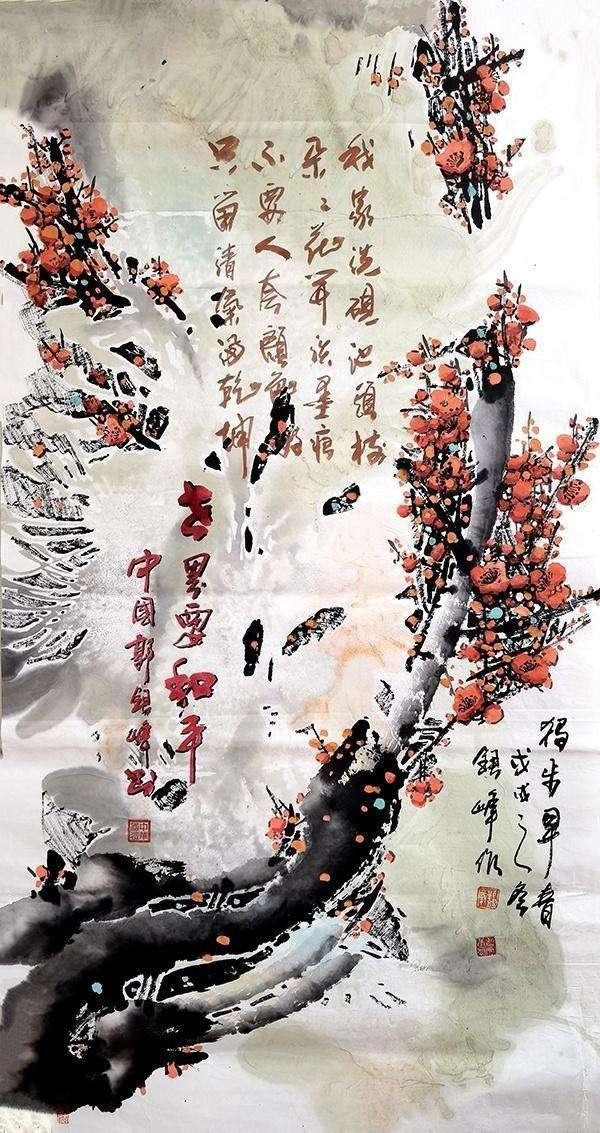 我家洗砚池头树
朵々花开淡墨痕
不要人夸颜色好
只留清气满乾坤
世界要和平
中国郭镇峰书
独步早春
戊戌之冬
镇峰作